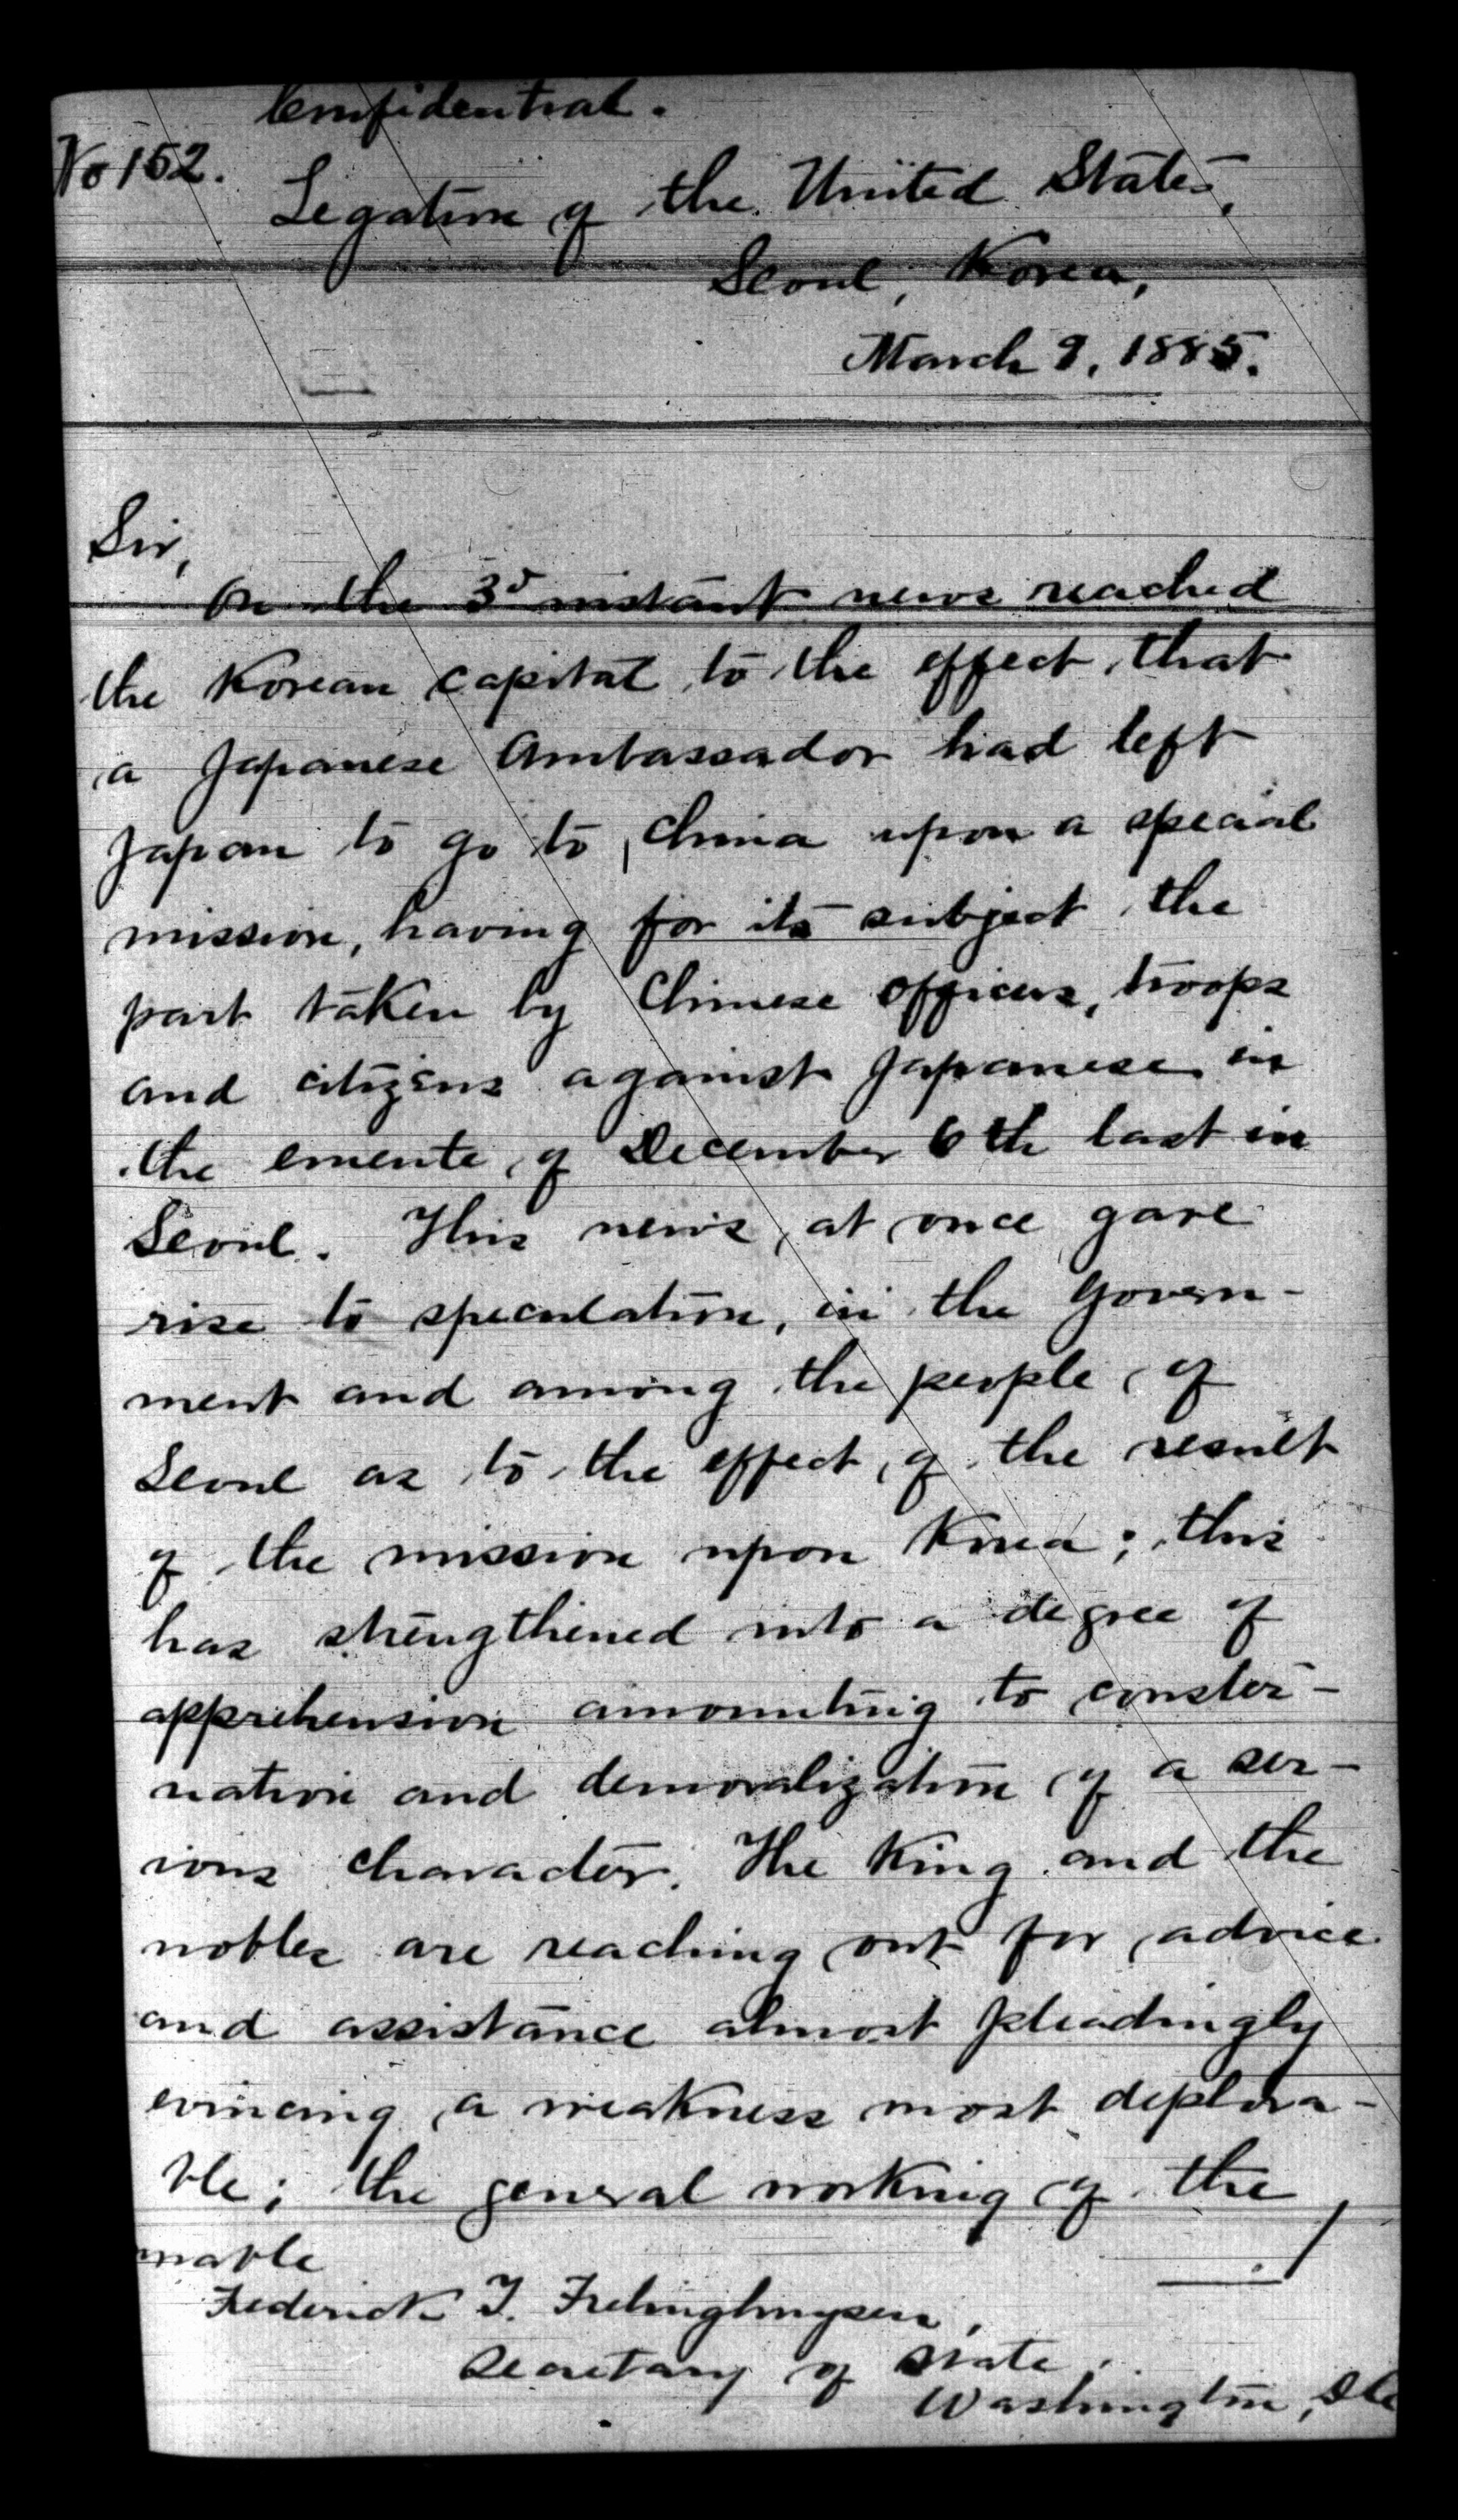 Confidential.
No 152.
Legation of the United States,
Seoul, Korea,
March 9, 1885.
Sir,
On the 3d instant news reached
the Korean capital to the effect that
a Japanese Ambassador had left
Japan to go to China upon a special
mission, having for its subject the
part taken by Chinese officers, troops
and citizens against Japanese in
the emente of December 6th last in
Seoul. This news at once gave
rise to speculation, in the Govern-
ment and among the people of
Seoul as to the effect of the result
of the mission upon Korea; this
has strengthened into a degree of
apprehension amounting to conster-
nation and demoralization of a ser-
ious character. The King and the
nobles are reaching out for advice
and assistance almost pleadingly
evincing a weakness most deplora-
ble; the general working of the
Frederick T. Frelinghuysen,
Secretary of State,
Washington,